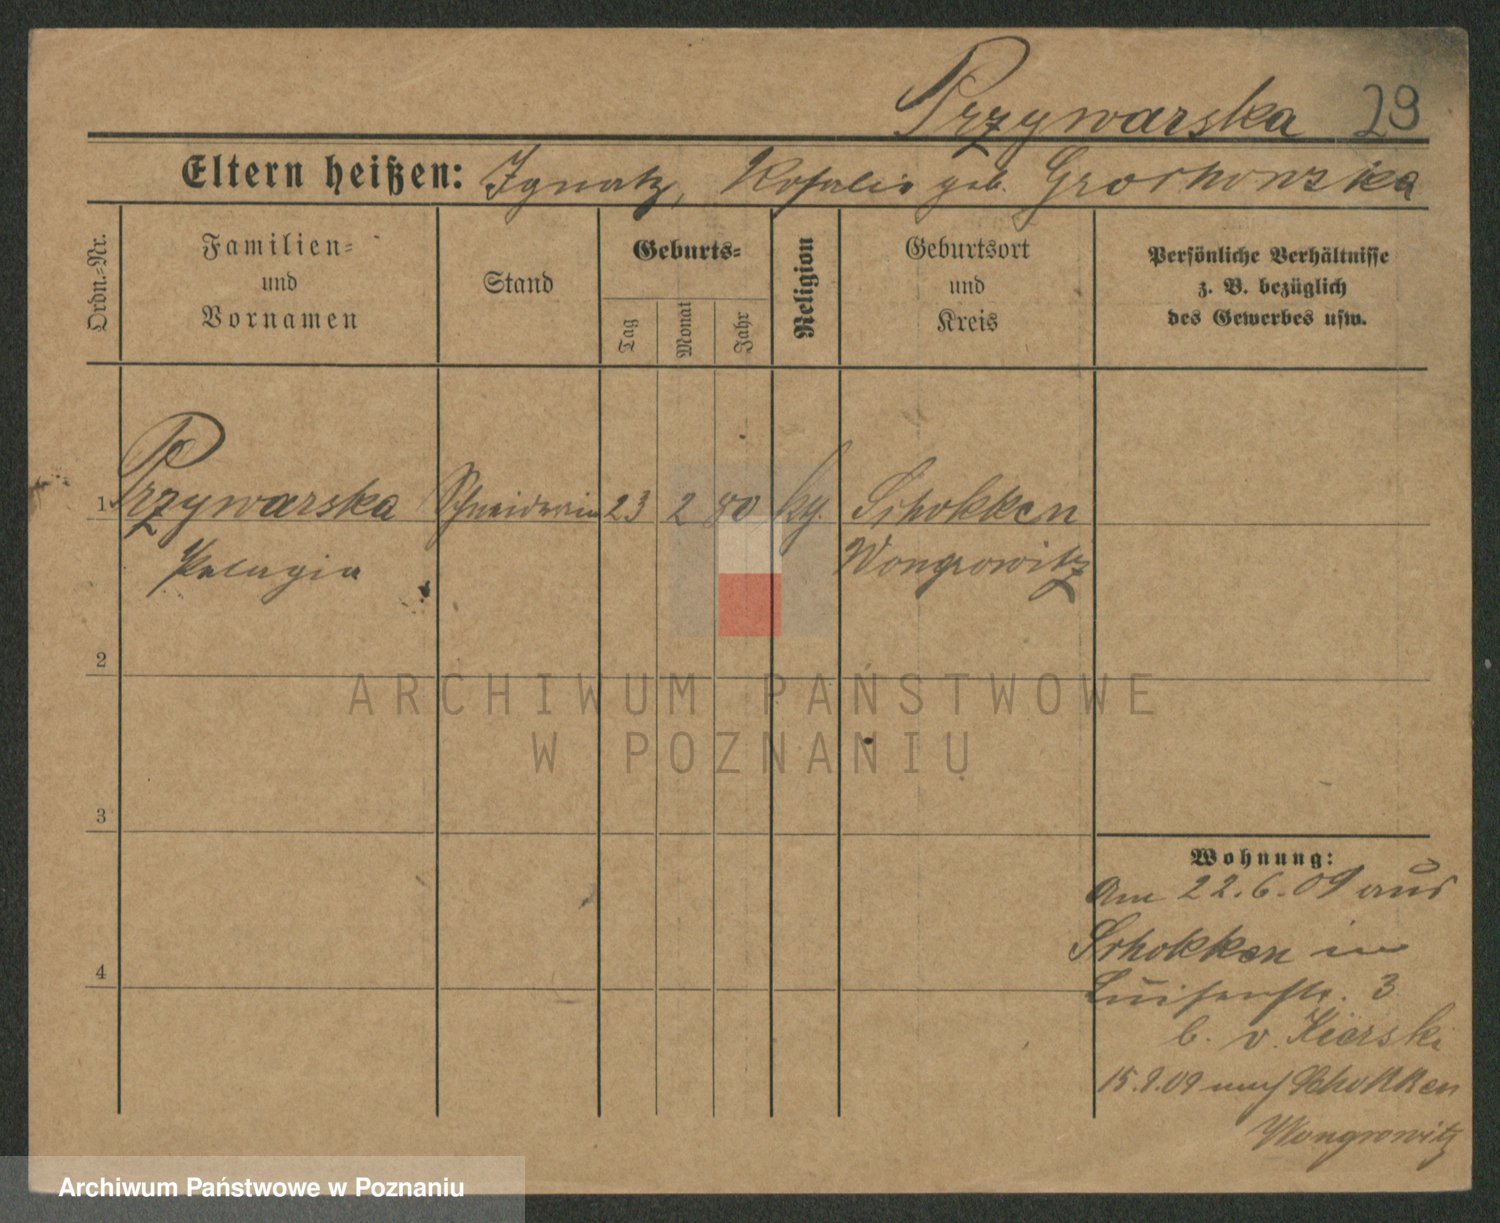 Przywarska 29
Eltern heißen: Ignatz, Rosalie geb. Grochowska
Ordn.-Nr.
Familien-
und
Vornamen
Stand
Geburts-
Tag
Monat
Jahr
Religion
Geburtsort
und
Kreis
Persönliche Verhältnisse
z. B. bezüglich
des Gewerbes usw.
1 Przywarska Schneiderin 23 2 80 kg. Schokken
Pelagia Wongrowitz
2
ARCHIWUM PAŃSTWOWE
W POZNANIU
3
Wohnung:
Am 22.6.09 aus
Schokken in
Luisenstr. 3
b. v. Kierski
15.9.09 nach Schokken
Wongrowitz
4
Archiwum Państwowe w Poznaniu